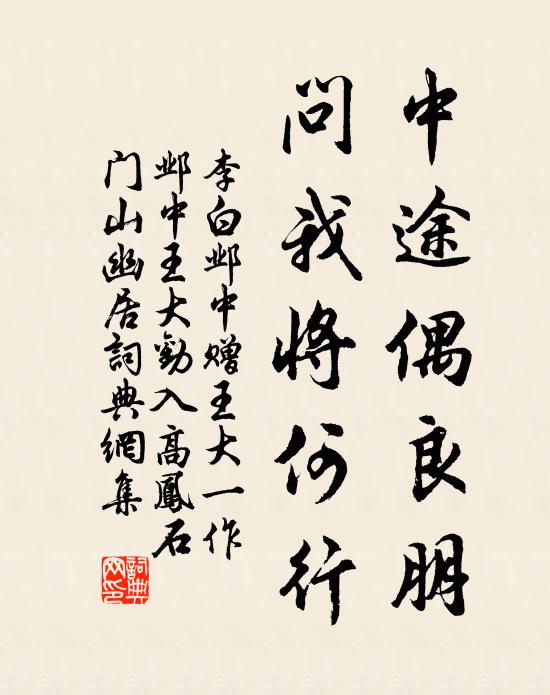 中途偶良朋
問我將何行
李白邺中赠王大一作
邺中王大勸入高鳳石
门山幽居詞典網集
詞典
网印